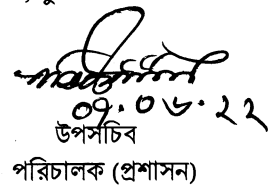 ০৭.০৬.২২
উপসচিব
পরিচালক (প্রশাসন)